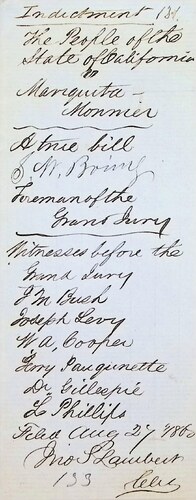 Indictment
The People of the
State of California
vs
Mariquita
Monnier
A true bill
Foreman of the
Grand Jury
Witnesses before the
Grand Jury
J M Bush
Joseph Levy
W A, Cooper
Dr Gillespie
Lo Phillips
Filed Aug 27
Jno S Lambert
Clerk
133